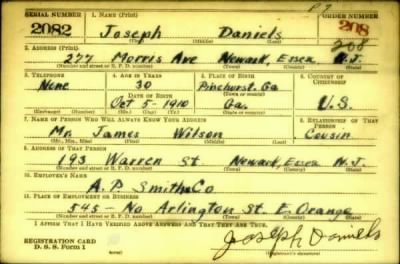 P 7
SERIAL NUMBER 1. NAME (Print) ORDER NUMBER
2082 Joseph Daniels 208
(First) (Middle) (Last)
2. ADDRESS (Print) 208
277 Morris Ave Newark, Essex N.J.
(Number and street or R. F. D. number) (Town) (County) (State)
3. TELEPHONE 4. AGE IN YEARS 5. PLACE OF BIRTH 6. COUNTRY OF CITIZENSHIP
None 30 Pinehurst Ga
DATE OF BIRTH (Town or county)
Oct 5 - 1910 Ga. U.S.
(Exchange) (Number) (Mo.) (Day) (Yr.) (State or country)
7. NAME OF PERSON WHO WILL ALWAYS KNOW YOUR ADDRESS 8. RELATIONSHIP OF THAT PERSON
Mr. James Wilson Cousin
(Mr., Mrs., Miss) (First) (Middle) (Last)
9. ADDRESS OF THAT PERSON
193 Warren St Newark, Essex N.J.
(Number and street or R. F. D. number) (Town) (County) (State)
10. EMPLOYER'S NAME
A. P. Smith Co
11. PLACE OF EMPLOYMENT OR BUSINESS
545 - No Arlington St. E. Orange
(Number and street or R. F. D. number) (Town) (County) (State)
I AFFIRM THAT I HAVE VERIFIED ABOVE ANSWERS AND THAT THEY ARE TRUE.
REGISTRATION CARD
D. S. S. Form 1 Joseph Daniels
(Registrant's signature)